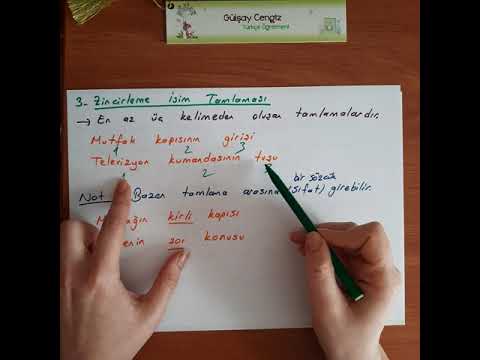 Gülşay Cengiz
Türkçe Öğretmeni
3- Zincirleme İsim Tamlaması
→ En az üç kelimeden oluşan tamlamalardır.
Mutfak kapısının girişi
1 2 3
Televizyon kumandasının tuşu
1 2
bir sözcük
Not: Bazen tamlama arasına (sıfat) girebilir.
kirli kapısı
zor konusu